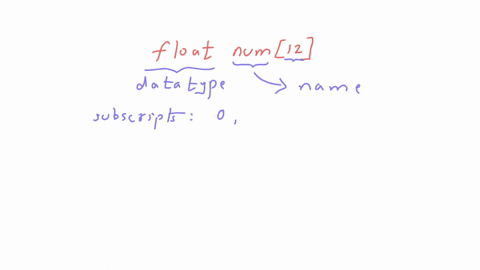 float num[12]
datatype name
subscripts: 0,